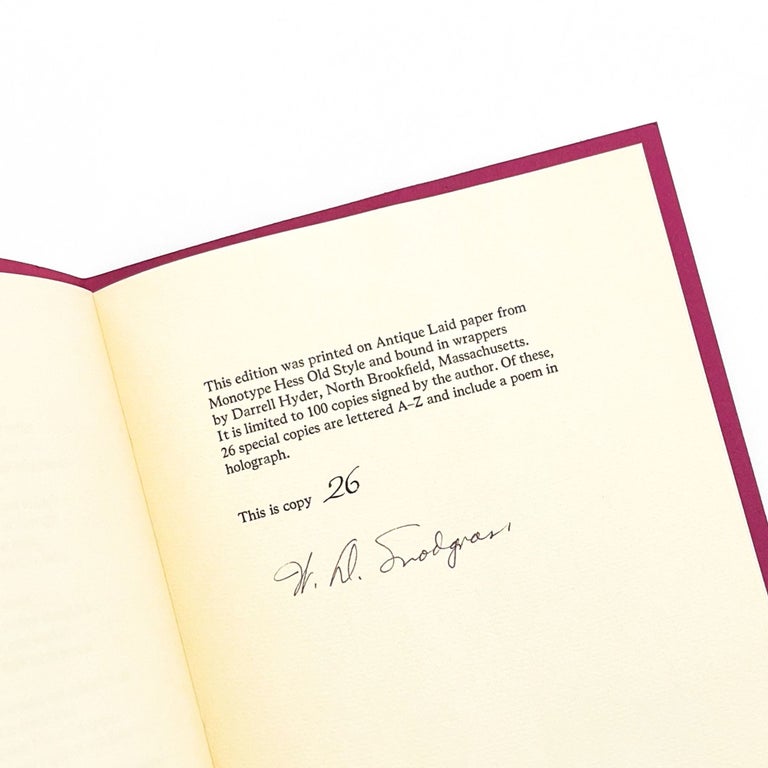 This edition was printed on Antique Laid paper from
Monotype Hess Old Style and bound in wrappers
by Darrell Hyder, North Brookfield, Massachusetts.
It is limited to 100 copies signed by the author. Of these,
26 special copies are lettered A–Z and include a poem in
holograph.
This is copy 26
W. D. Snodgrass